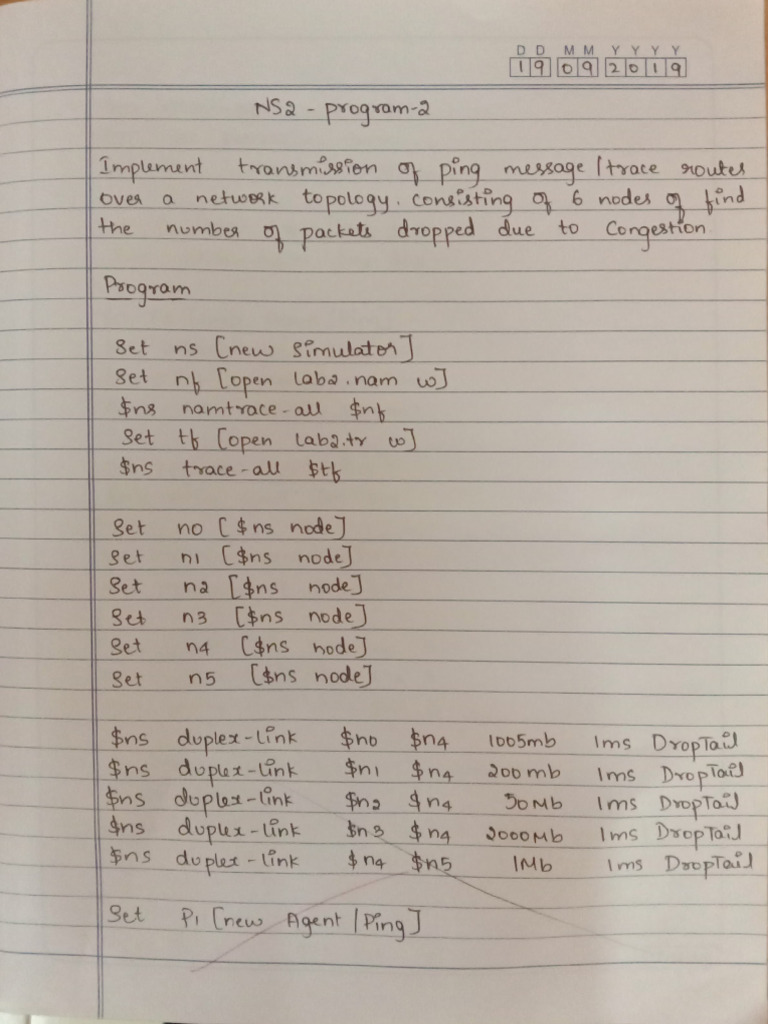 D D M M Y Y Y Y
1 9 0 9 2 0 1 9
NS2 - program-2
Implement transmission of ping message / trace routes
over a network topology. consisting of 6 nodes of find
the number of packets dropped due to Congestion
Program
Set ns [new Simulator]
Set nf [open lab2.nam w]
$ns namtrace-all $nf
Set tf [open lab2.tr w]
$ns trace-all $tf
Set n0 [$ns node]
Set n1 [$ns node]
Set n2 [$ns node]
Set n3 [$ns node]
Set n4 [$ns node]
Set n5 [$ns node]
$ns duplex-link $n0 $n4 1005mb 1ms DropTail
$ns duplex-link $n1 $n4 200mb 1ms DropTail
$ns duplex-link $n2 $n4 50Mb 1ms DropTail
$ns duplex-link $n3 $n4 2000Mb 1ms DropTail
$ns duplex-link $n4 $n5 1Mb 1ms DropTail
Set P1 [new Agent/Ping]